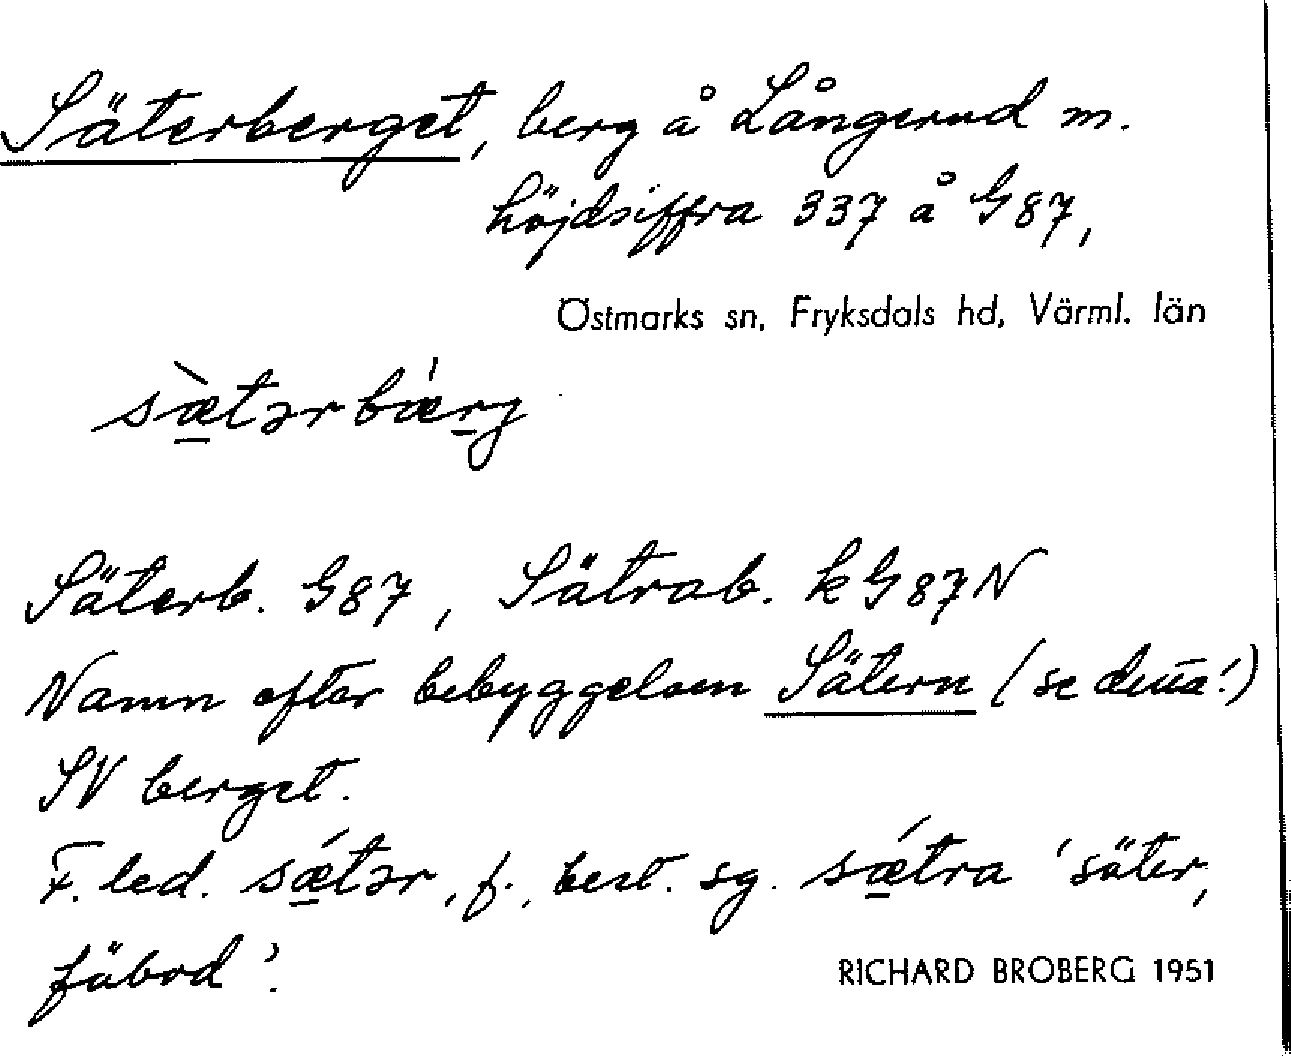 Säterberget, berg å Långerud m.
höjdsiffra 337 å G 87,
Östmarks sn, Fryksdals hd, Värml. län
sæ̀tərbǽrj
Säterb. G 87, Sätrab. k G 87 N
Namn efter bebyggelsen Sätern (se denna!)
SV berget.
F. led. sǽtər, f., best. sg. sǽtra 'säter,
fäbod'.
RICHARD BROBERG 1951